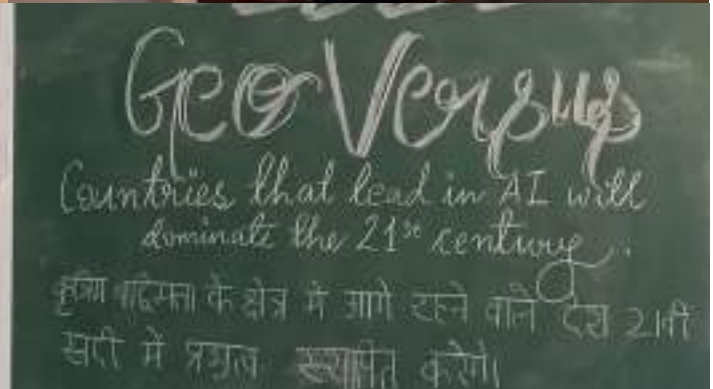 Geo Versus
Countries that lead in AI will
dominate the 21st century.
कृत्रिम बुद्धिमत्ता के क्षेत्र में आगे रहने वाले देश 21वीं
सदी में प्रभुत्व स्थापित करेंगे।